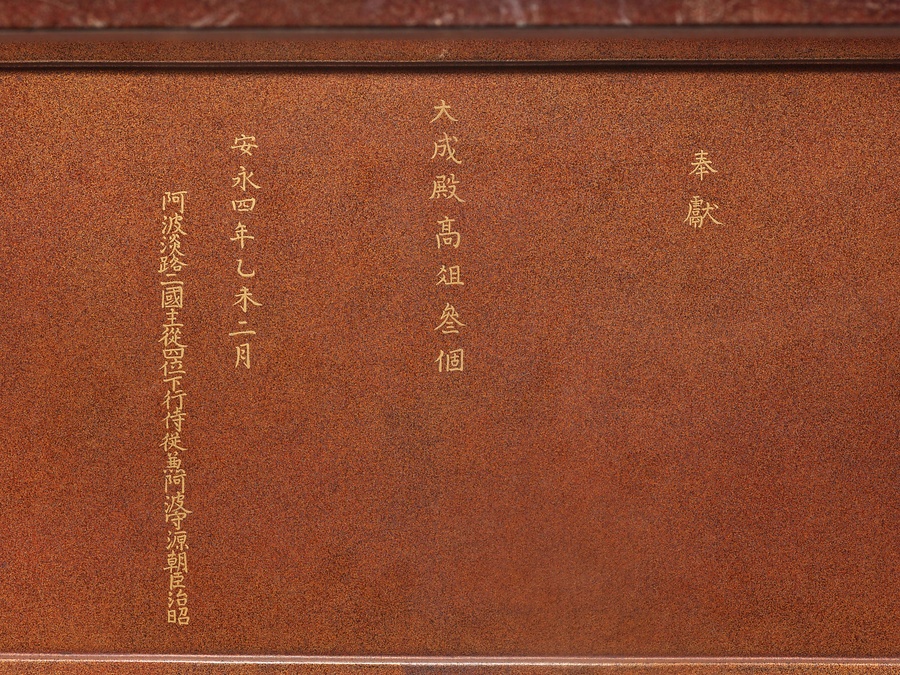 奉獻
大成殿髙俎叄個
安永四年乙未二月
阿波淡路二國主從四位下行侍從兼阿波守源朝臣治昭